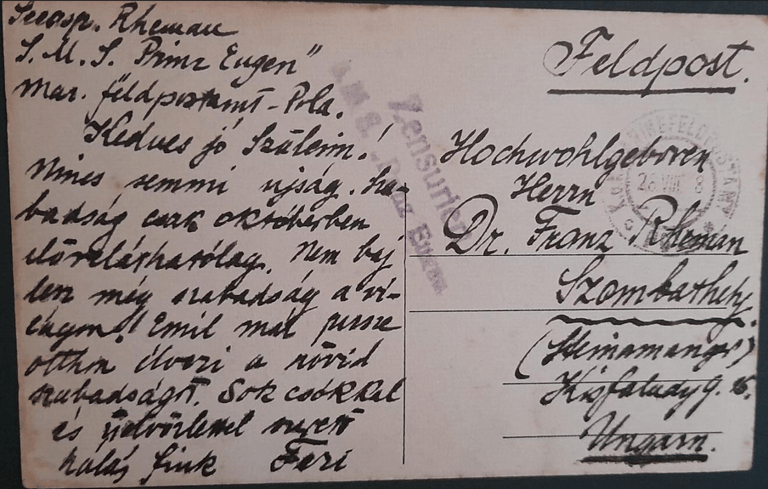 Seeasp. Rheman
S. M. S. Prinz Eugen"
Mar. feldpostamt - Pola.
Kedves jó Szüleim!
Nincs semmi ujság. Sza-
badság csak októberben
előreláthatólag. Nem baj
lesz még szabadság a vi-
lágon! Emil már persze
otthon élvezi a rövid
szabadságot. Sok csókkal
és üdvözlettel szerető
hálás fiuk Feri
Zensuriert
S.M.S. Prinz Eugen
Feldpost.
MARINEFELDPOSTAMT
28 VIII 8
Hochwohlgeboren
Herrn
Dr. Franz Rheman
Szombathely.
(Steinamanger)
Kisfaludy g.
Ungarn.